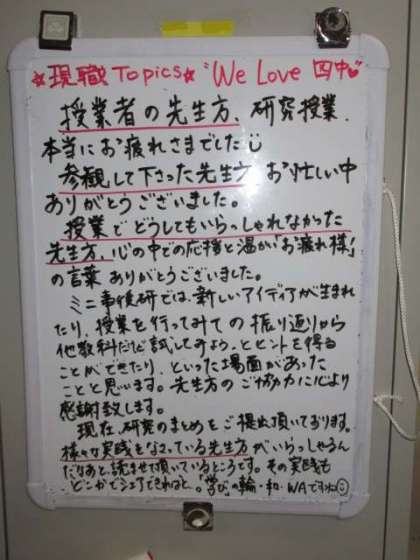 ☆現職Topics☆ "We Love 四中♥
授業者の先生方、研究授業、
本当にお疲れさまでした☺
参観して下さった先生方 お忙しい中
ありがとうございました。
授業でどうしてもいらっしゃれなかった
先生方、心の中での応援と温かい「お疲れ様」
の言葉 ありがとうございました。
ミニ事後研では、新しいアイディアが生まれ
たり、授業を行ってみての振り返りから
他教科だけど試してみよう、とヒントを得る
ことができたり、といった場面があった
ことと思います。先生方のご協力に心より
感謝致します。
現在、研究のまとめをご提出頂いております。
様々な実践をなさっている先生方がいらっしゃるん
だなあと、読ませて頂いているところです。その実践も
どこかでシェアできれば。「学び」の輪・和・WAですね☺